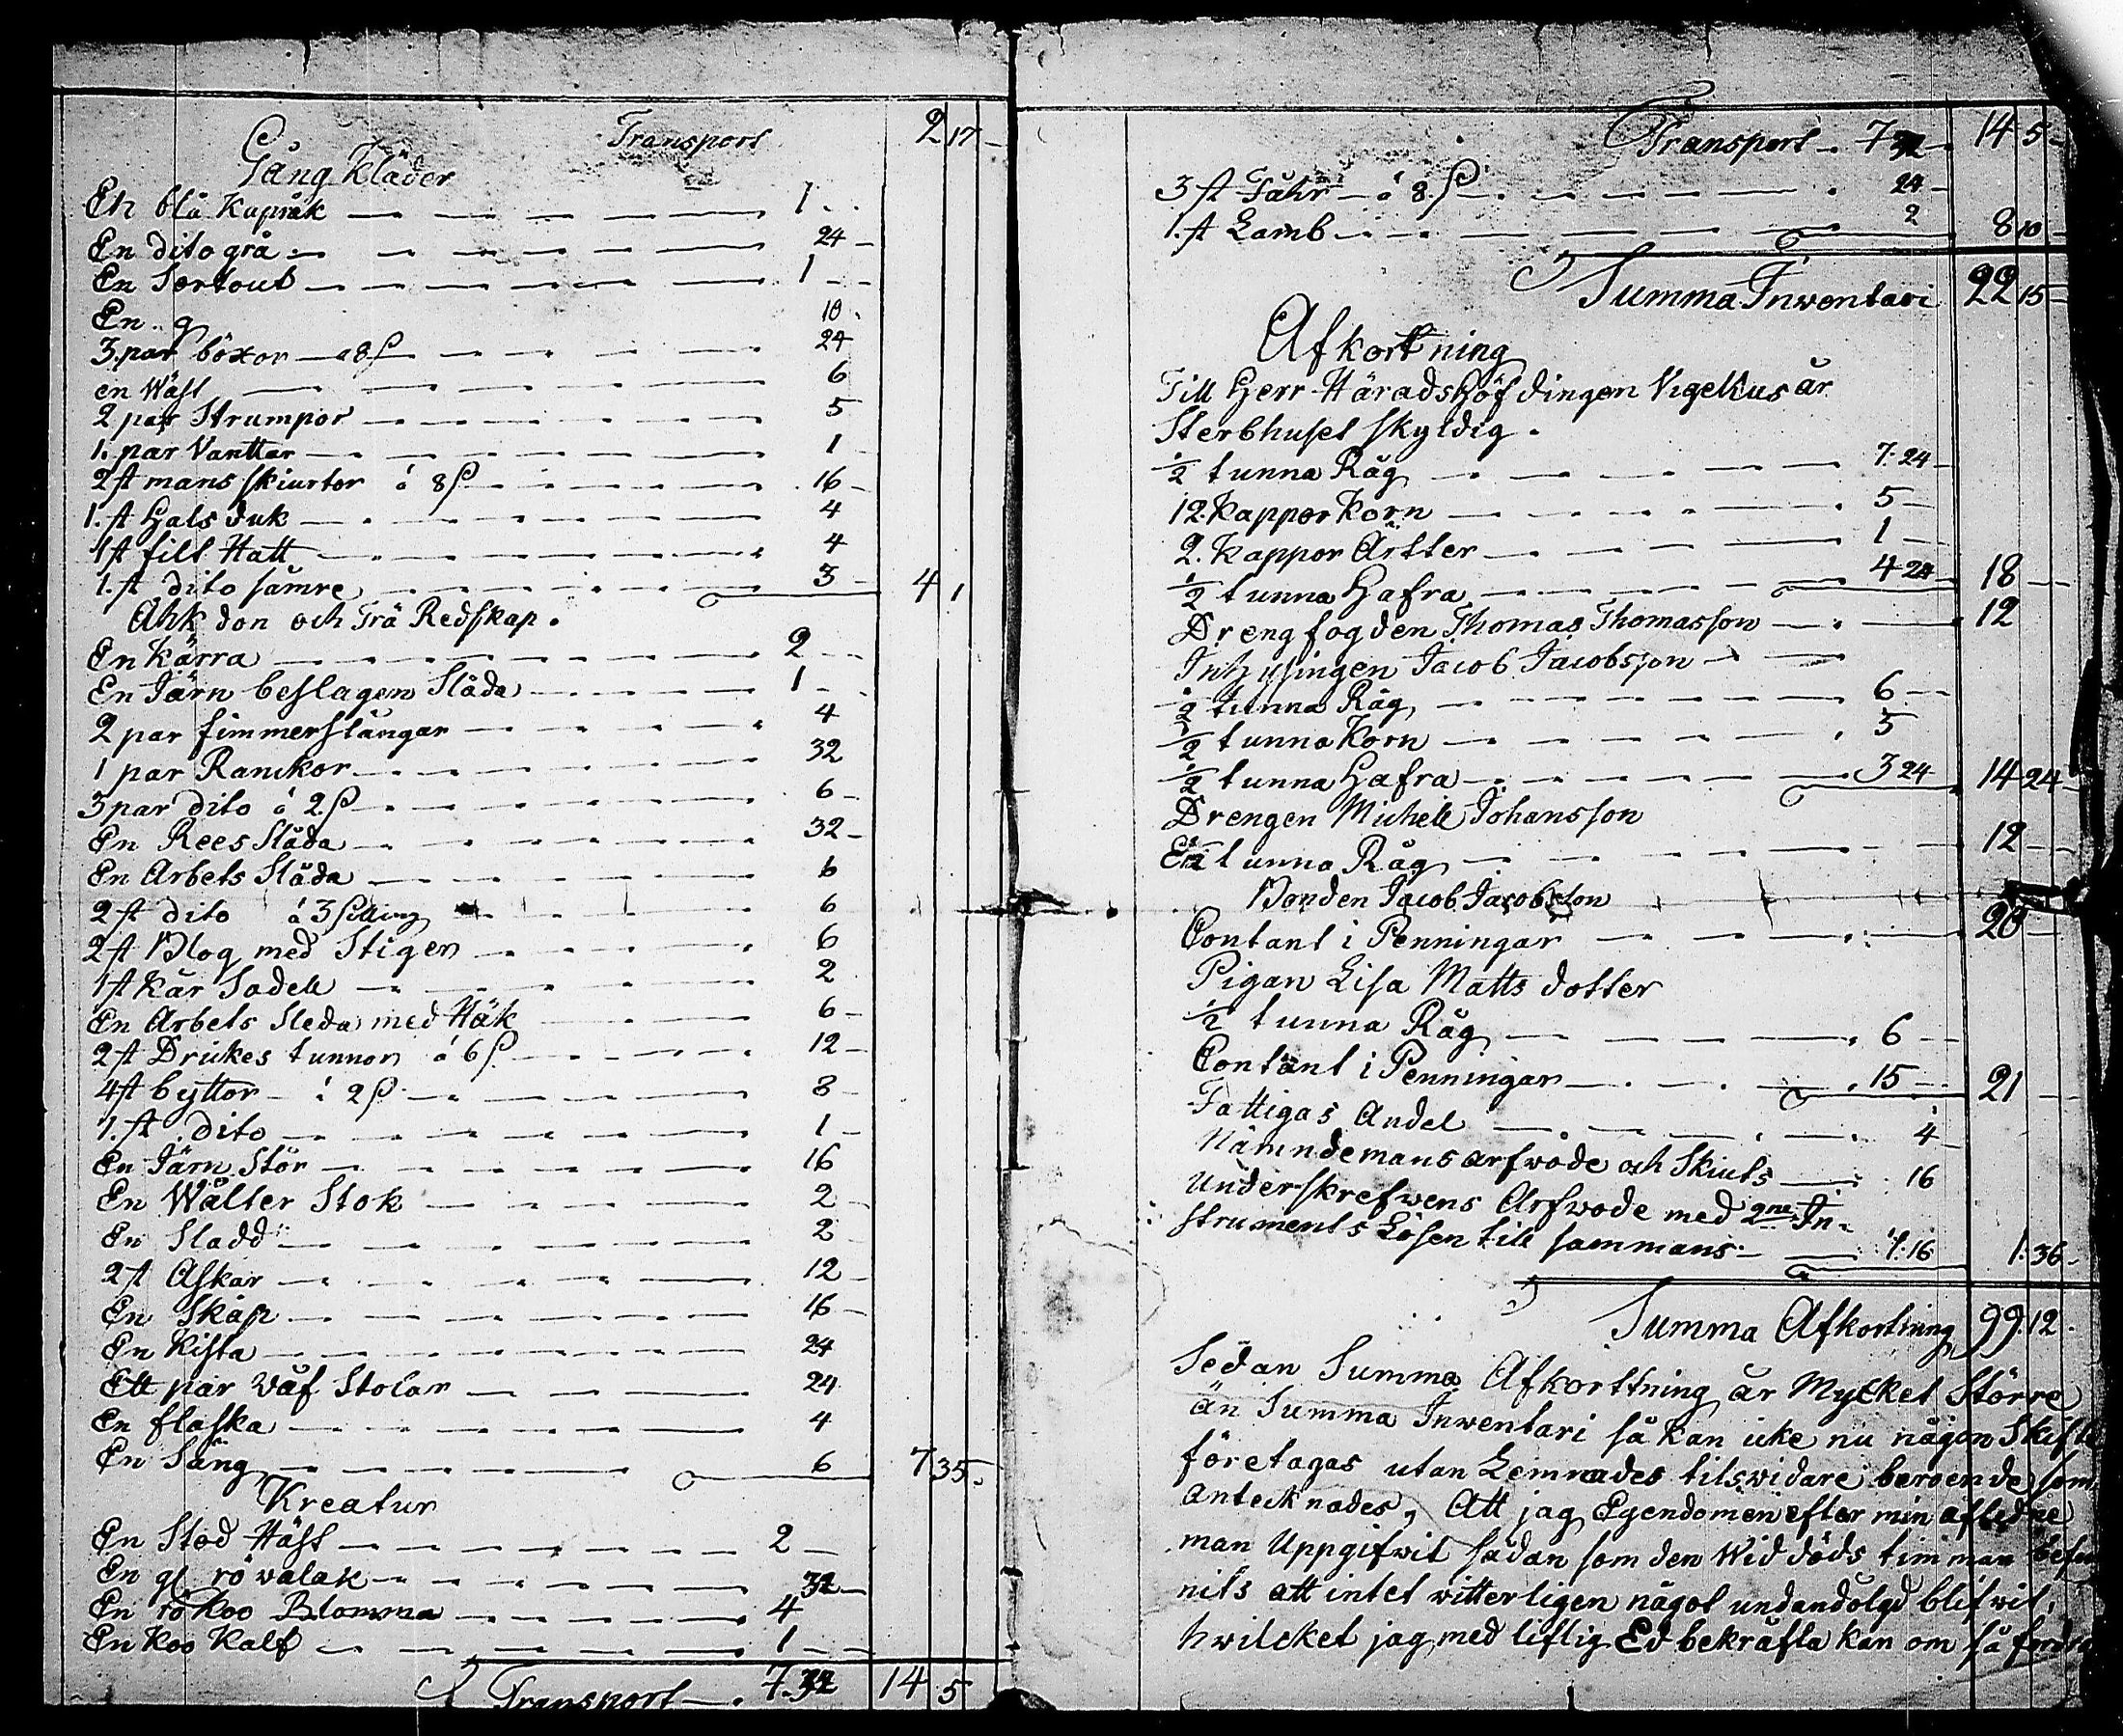 Transport 2 17
Gång Kläder
En blå Kapråk 1
En dito grå 24
En Sertout 1
En g 10
3 par böxor a 8 ß 24
en Wäst 6
2 par Strumpor 5
1. par Vanttar 1
2 st mans skiurtor á 8 ß 16
1. st Hals duk 4
1 st filt Hatt 4
1. st dito sämre 3 4 1
Åhk don och Trä Redskap.
En Kärra 2
En Järn beslagen Släda 1
2 par fimmerstänger 4
1 par Ranckor 32
3 par dito á 2 ß 6
En Rees Släda 32
En Arbets Släda 6
2 st dito á 3 silling 6
2 st Plog med Stigen 6
1 st Kär Sadell 2
En Arbets Sleda med Häk 6
2 st Drickes tunnor á 6 ß 12
4 st byttor á 2 ß 8
1. st dito 1
En Järn Stör 16
En Wälter Stok 2
En Sladd 2
2 st Askar 12
En Skåp 16
En Kista 24
Ett par Wäf Stolar 24
En flaska 4
En Säng 6 7 35
Kreatur
En Stod Häst 2
En gl rö walak 32
En rö Koo Blomma 4
En Koo Kalf 1
Transport 7. 32 14 5
Transport 7 32 14 5
3 st Fåhr á 8. ß 24
1. st Lamb 2 8 10
Summa Inwentari 22 15
Afkortning
Till Herr Häradshöfdingen Vigelius är
Sterbhuset skyldig.
1/2 tunna Råg 7. 24
12. Kappor Korn 5
2. Kappor Ärtter 1
1/2 tunna Hafra 4 24 18
Drengfogden Thomas Thomasson 12
Inhysingen Jacob Jacobsson
1/2 tunna Råg 6
1/2 tunna Korn 5
1/2 tunna Hafra 3 24 14 24
Drengen Michell Johansson
En tunna Råg 12
Bonden Jacob Jacobsson
Contant i Penningar 20
Pigan Lisa Matts dotter
1/2 tunna Råg 6
Contant i Penningar 15 21
Fattigas Andel 4
Nämndemans arfwode och Skiuts 16
Underskrefwens Arfwode med 2ne In-
struments Lösen till sammans 1: 16 1: 36
Summa Afkortning 99. 12
Sedan Summa Afkorttning är Mycket Större
än Summa Inwentari så kan icke nu någon Skifte
företagas utan Lemnades tilswidare beroende som
antecknades, Att jag Egendomen efter min aflidne
man Uppgifwit sådan som den Wid döds timman befun
nits att intet witterligen något undandölgd blifwit,
hwilcket jag med liflig Ed bekräfta kan om så fordra